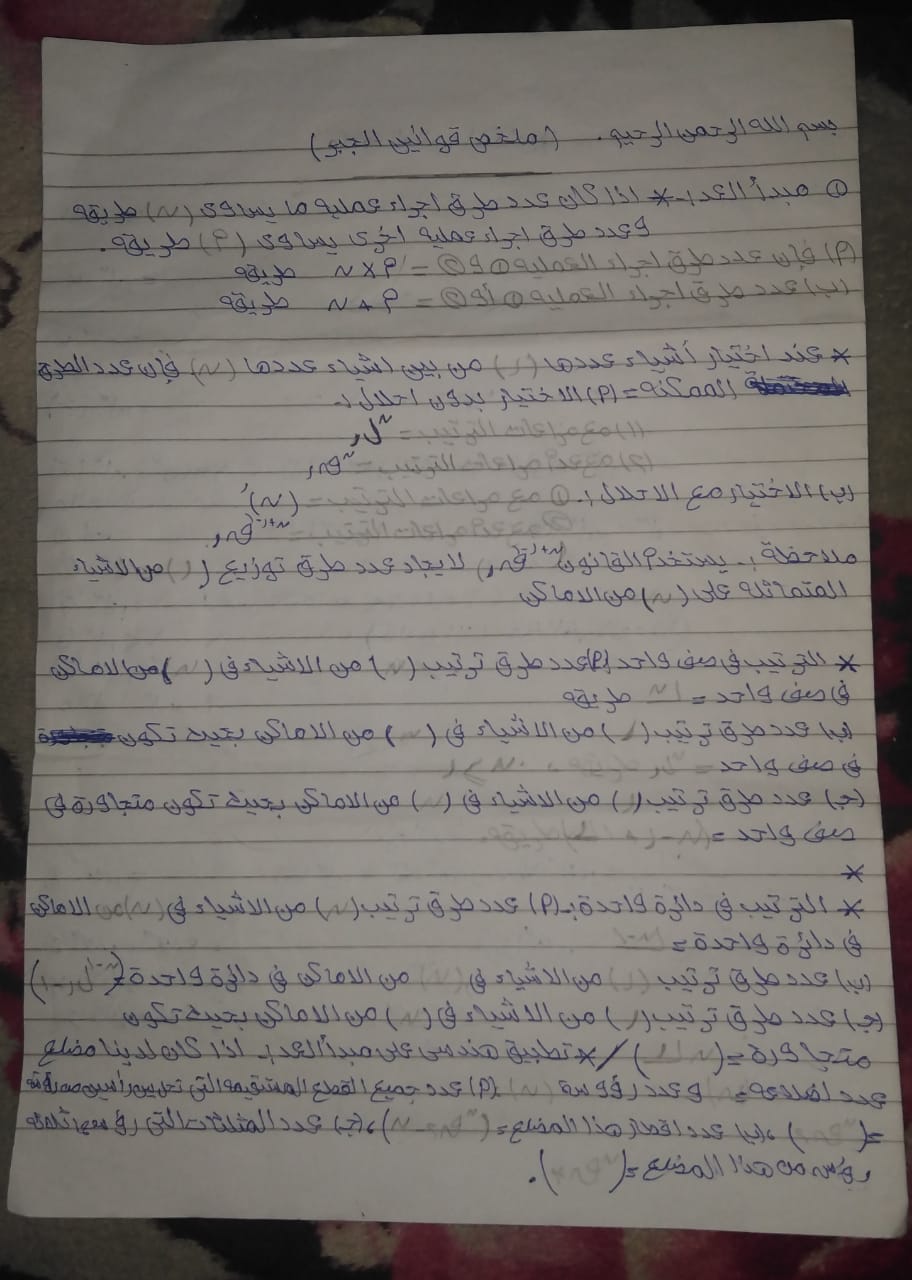 بسم الله الرحمن الرحيم. (ملخص قوانين الجبر)
① مبدأ العد:- * اذا كان عدد طرق اجراء عمليه ما يساوى (ن) طريقه
وعدد طرق اجراء عمليه اخرى يساوى (م) طريقه.
(م) فإن عدد طرق اجراء العمليه ① و ② = م × ن طريقه
(ب) عدد طرق اجراء العمليه ① أو ② = م + ن طريقه
* عند اختيار أشياء عددها (ر) من بين اشياء عددها (ن) فإن عدد الطرق
الممكنه = (م) الاختيار بدون احلال :-
(١) مع مراعات الترتيب = نلر
(٢) مع عدم مراعات الترتيب = نقر
(ب) الاختيار مع الاحلال :- ① مع مراعات الترتيب = (ن)ر
② مع عدم مراعات الترتيب = ن+ر-١قر
ملاحظة :- يستخدم القانون ن+ر-١قر لايجاد عدد طرق توزيع (ر) من الاشياء
المتماثله على (ن) من الاماكن
* الترتيب فى صف واحد (م) عدد طرق ترتيب (ن) من الاشياء فى (ن) من الاماكن
فى صف واحد = ن! طريقه
(ب) عدد طرق ترتيب (ر) من الاشياء فى (ن) من الاماكن بحيث تكون
فى صف واحد = نلر
(ج) عدد طرق ترتيب (ر) من الاشياء فى (ن) من الاماكن بحيث تكون متجاورة فى
صف واحد = طريقة.
*
* الترتيب فى دائرة واحدة :- (م) عدد طرق ترتيب (ن) من الاشياء فى (ن) من الاماكن
فى دائرة واحدة = ن-١
(ب) عدد طرق ترتيب (ر) من الاشياء فى (ن) من الاماكن فى دائرة واحدة = (ن-١لر-١)
(ج) عدد طرق ترتيب (ر) من الاشياء فى (ن) من الاماكن بحيث تكون
متجاورة = / * تطبيق هندسى على مبدأ العد :- اذا كان لدينا مضلع
عدد اضلاعه = وعدد رؤوسة (ن) (م) عدد جميع القطع المستقيمه التى تصل بين رأسين من رؤوسه
= (نق٢) ، (ب) عدد اقطار هذا المضلع = (نق٢ - ن) ، (ج) عدد المثلثات التى رؤوسها ثلاثه
رؤس من هذا المضلع = (نق٣).